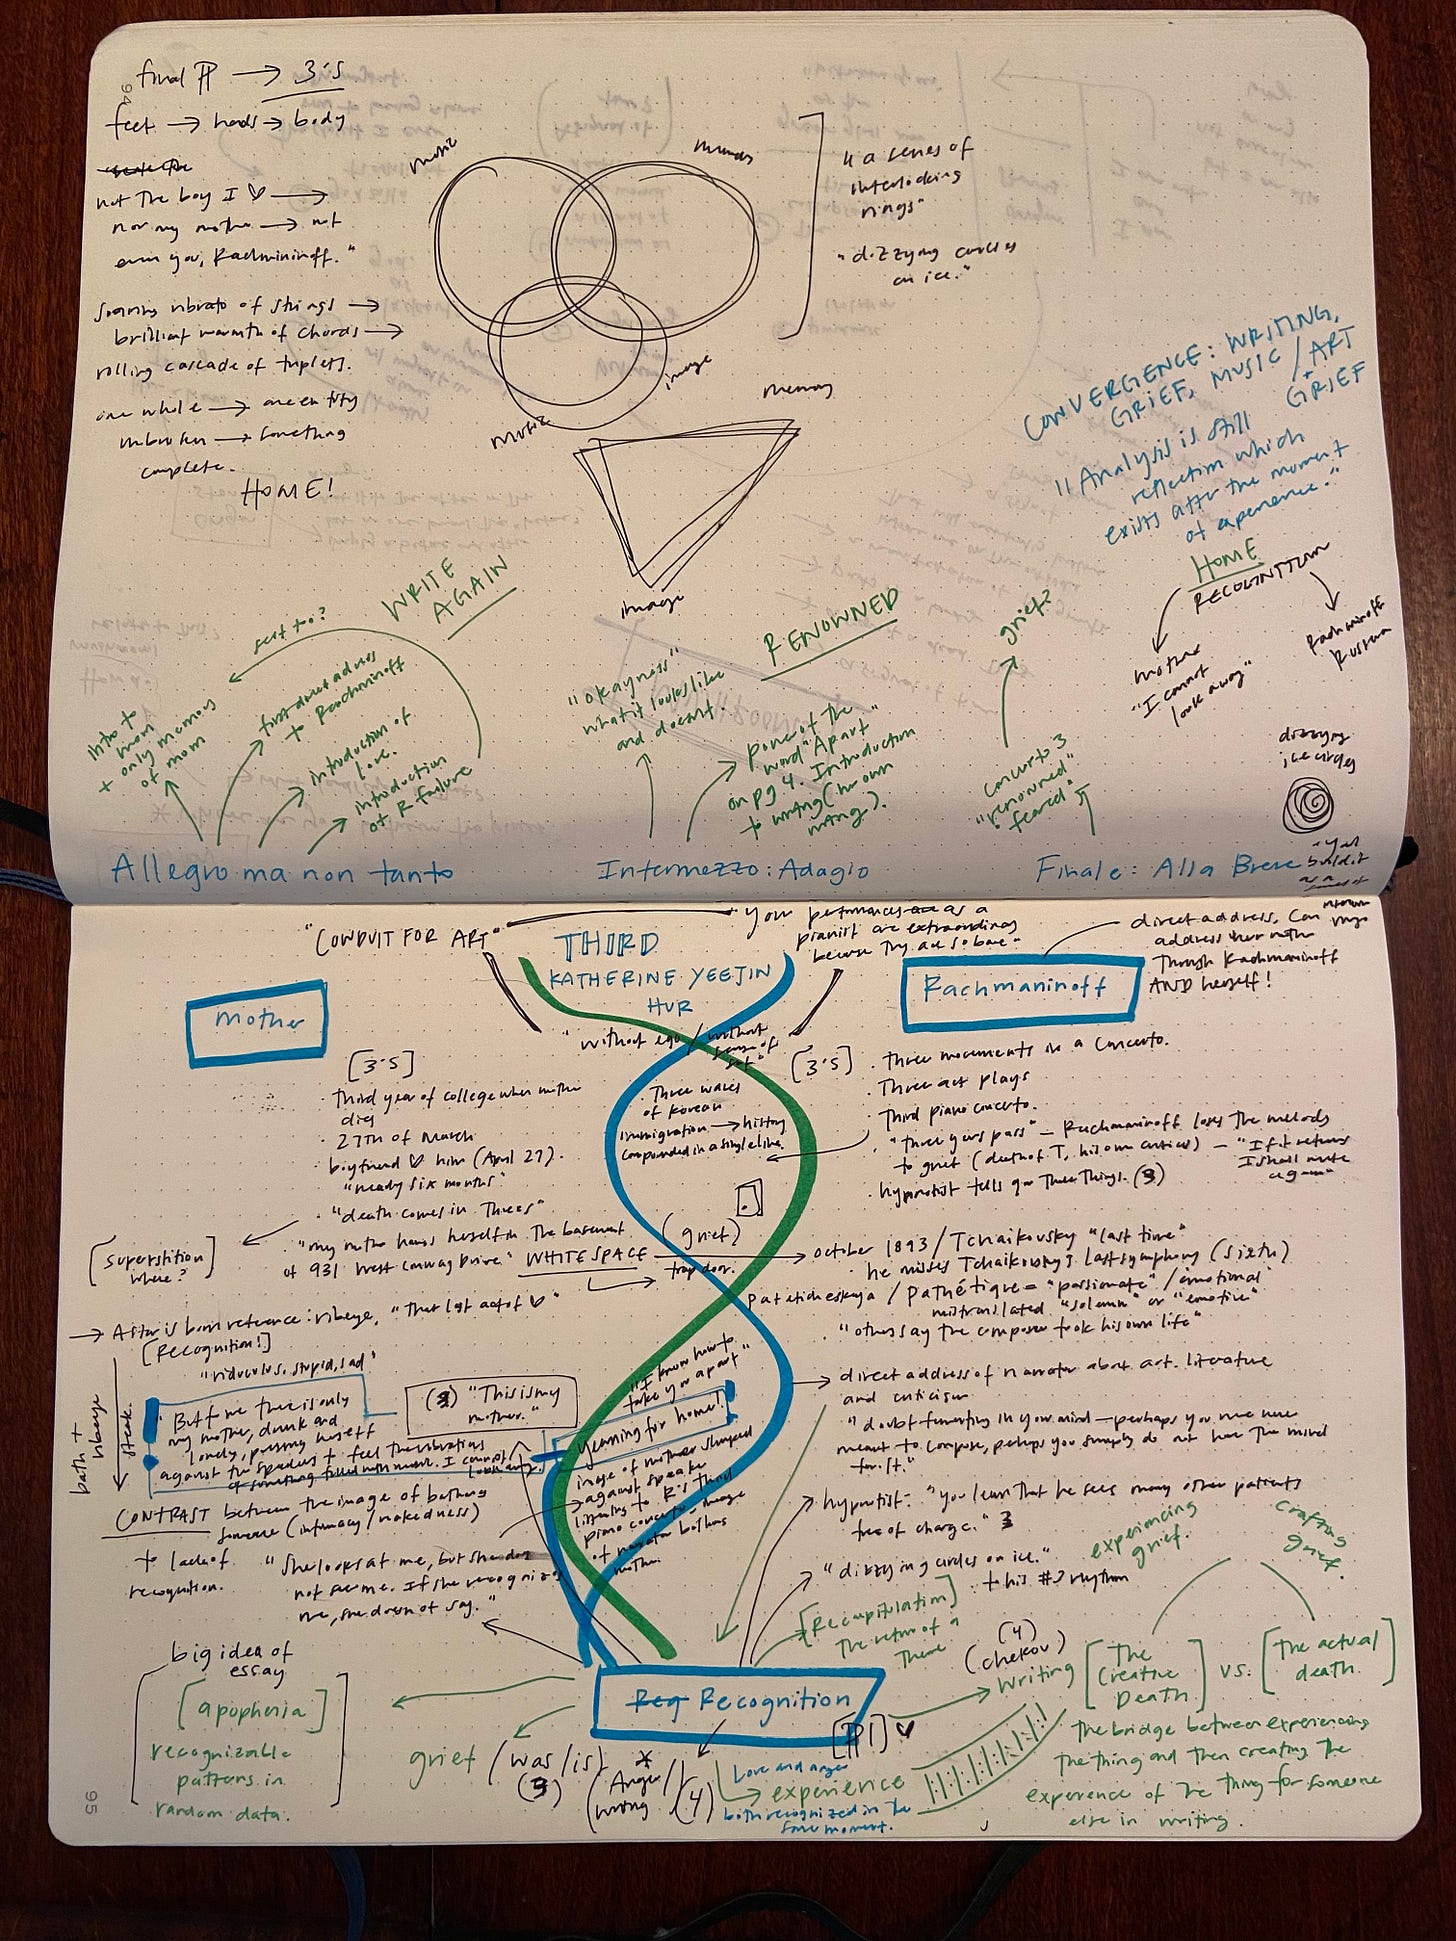 94
final ¶ → 3's
feet → hands → body
not the boy I ♡ →
nor my mother → not
even you, Rachmininoff."
soaring vibrato of strings →
brilliant warmth of chords →
rolling cascade of triplets.
one whole → one entity
unbroken → something
complete.
HOME!
music
image
"a series of
interlocking
rings"
"dizzying circles
on ice."
music
memory
image
CONVERGENCE: WRITING,
GRIEF, MUSIC / ART
+
GRIEF
"Analysis is still
reflection which
exists after the moment
of experience."
HOME
RECOGNITION
mother
"I cannot
look away"
Rachmaninoff
Russia
dizzying
ice circles
WRITE
AGAIN
sent to?
intro to
mom
+ only memories
of mom
first direct address
to Rachmaninoff
introduction of
love.
introduction
of R failure
"okayness"
what it looks like
and doesn't.
RENOWNED
power of the
word "Apart"
on pg 4. Introduction
to writing (her own
writing).
grief?
concerto 3
"renowned"
"feared"
Allegro ma non tanto
Intermezzo: Adagio
Finale: Alla Breve
"CONDUIT FOR ART"
your performances as a
pianist are extraordinary
because they are so bare"
THIRD
KATHERINE YEEJIN
HUR
direct address. Can
address her mother
through Rachmaninoff
AND herself!
mother
Rachmaninoff
"without ego / without
sense of
self"
[3's]
· Third year of college when mother
dies
· 27th of March
· boyfriend ♡ him (April 27).
"nearly six months"
· "death comes in threes"
[superstition
where?]
· Three waves
of Korean
immigration → history
compounded in a single line.
[3's]
· Three movements in a concerto.
· Three act plays
· Third piano concerto.
· "three years pass" — Rachmaninoff loses the melody
to grief (death of T, his own critics) — "If it returns
I shall write
again"
· hypnotist tells you three things. (3)
"my mother hangs herself in the basement
of 931 West Conway Drive" WHITE SPACE
(grief)
trap door.
October 1893 / Tchaikovsky "last time"
he misses Tchaikovsky's last symphony (sixth)
Pateticheskaya / pathétique = "passionate" / emotional
mistranslated "solemn" or "emotive"
"others say the composer took his own life"
→ A star is born reference: ribeye, "That last act of ♡"
[Recognition!]
"ridiculous, stupid, sad"
bath + ribeye steak.
"But for me there is only
my mother, drunk and
lonely, pressing herself
against the speakers to feel the vibrations
of something filled with music. I cannot
look away."
(3) "This is my
mother."
"I know how to
take you apart"
yearning for home!
image of mother slumped
against speaker
listening to R's third
piano concerto + image
of narrator bathing
mother.
direct address of narrator about art, literature
and criticism
"doubt fermenting in your mind — perhaps you were never
meant to compose, perhaps you simply do not have the mind
for it."
CONTRAST between the image of bathing
someone (intimacy / nakedness)
to lack of
recognition.
"She looks at me, but she does
not see me. If she recognizes
me, she does not say."
hypnotist: "you learn that he sees many other patients
free of charge." 3
"dizzying circles on ice."
+ his #3 rhythm
experiencing
grief.
crafting
grief.
[Recapitulation]
The return of a
theme
big idea of
essay
[apophenia]
recognizable
patterns in
random data.
Recognition
[¶1] ♡
(4)
(chekov)
writing
[The
Creative
Death]
vs.
[The actual
death.]
grief (was/is)
(3)
*
(Anger/
wrong
(4)
Love and anger
experience
both recognized in the
same moment.
The bridge between experiencing
the thing and then creating the
experience of the thing for someone
else in writing.
95